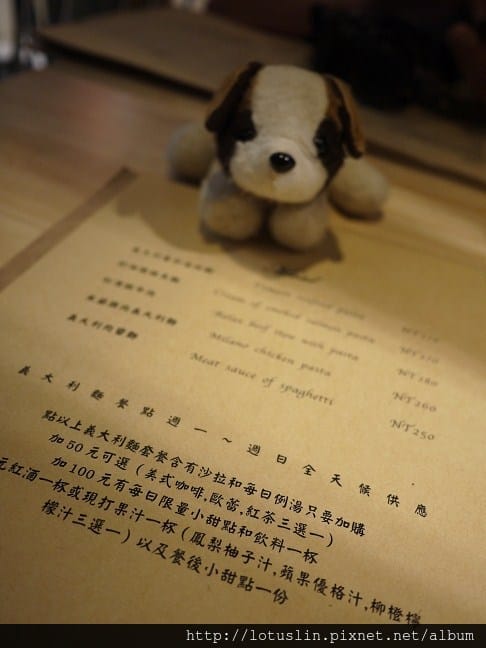 Cream of smoked salmon pasta NT270
Relax beef stew with pasta NT280
米蘭雞肉義大利麵 Milano chicken pasta NT260
義大利肉醬麵 Meat sauce of spaghetti NT250
義大利麵餐點週一～週日全天候供應
點以上義大利麵套餐含有沙拉和每日例湯只要加購
加50元可選（美式咖啡,歐蕾,紅茶三選一）
加100元有每日限量小甜點和飲料一杯
元紅酒一杯或現打果汁一杯（鳳梨柚子汁,蘋果優格汁,柳橙檸
檬汁三選一）以及餐後小甜點一份
http://lotuslin.pixnet.net/album